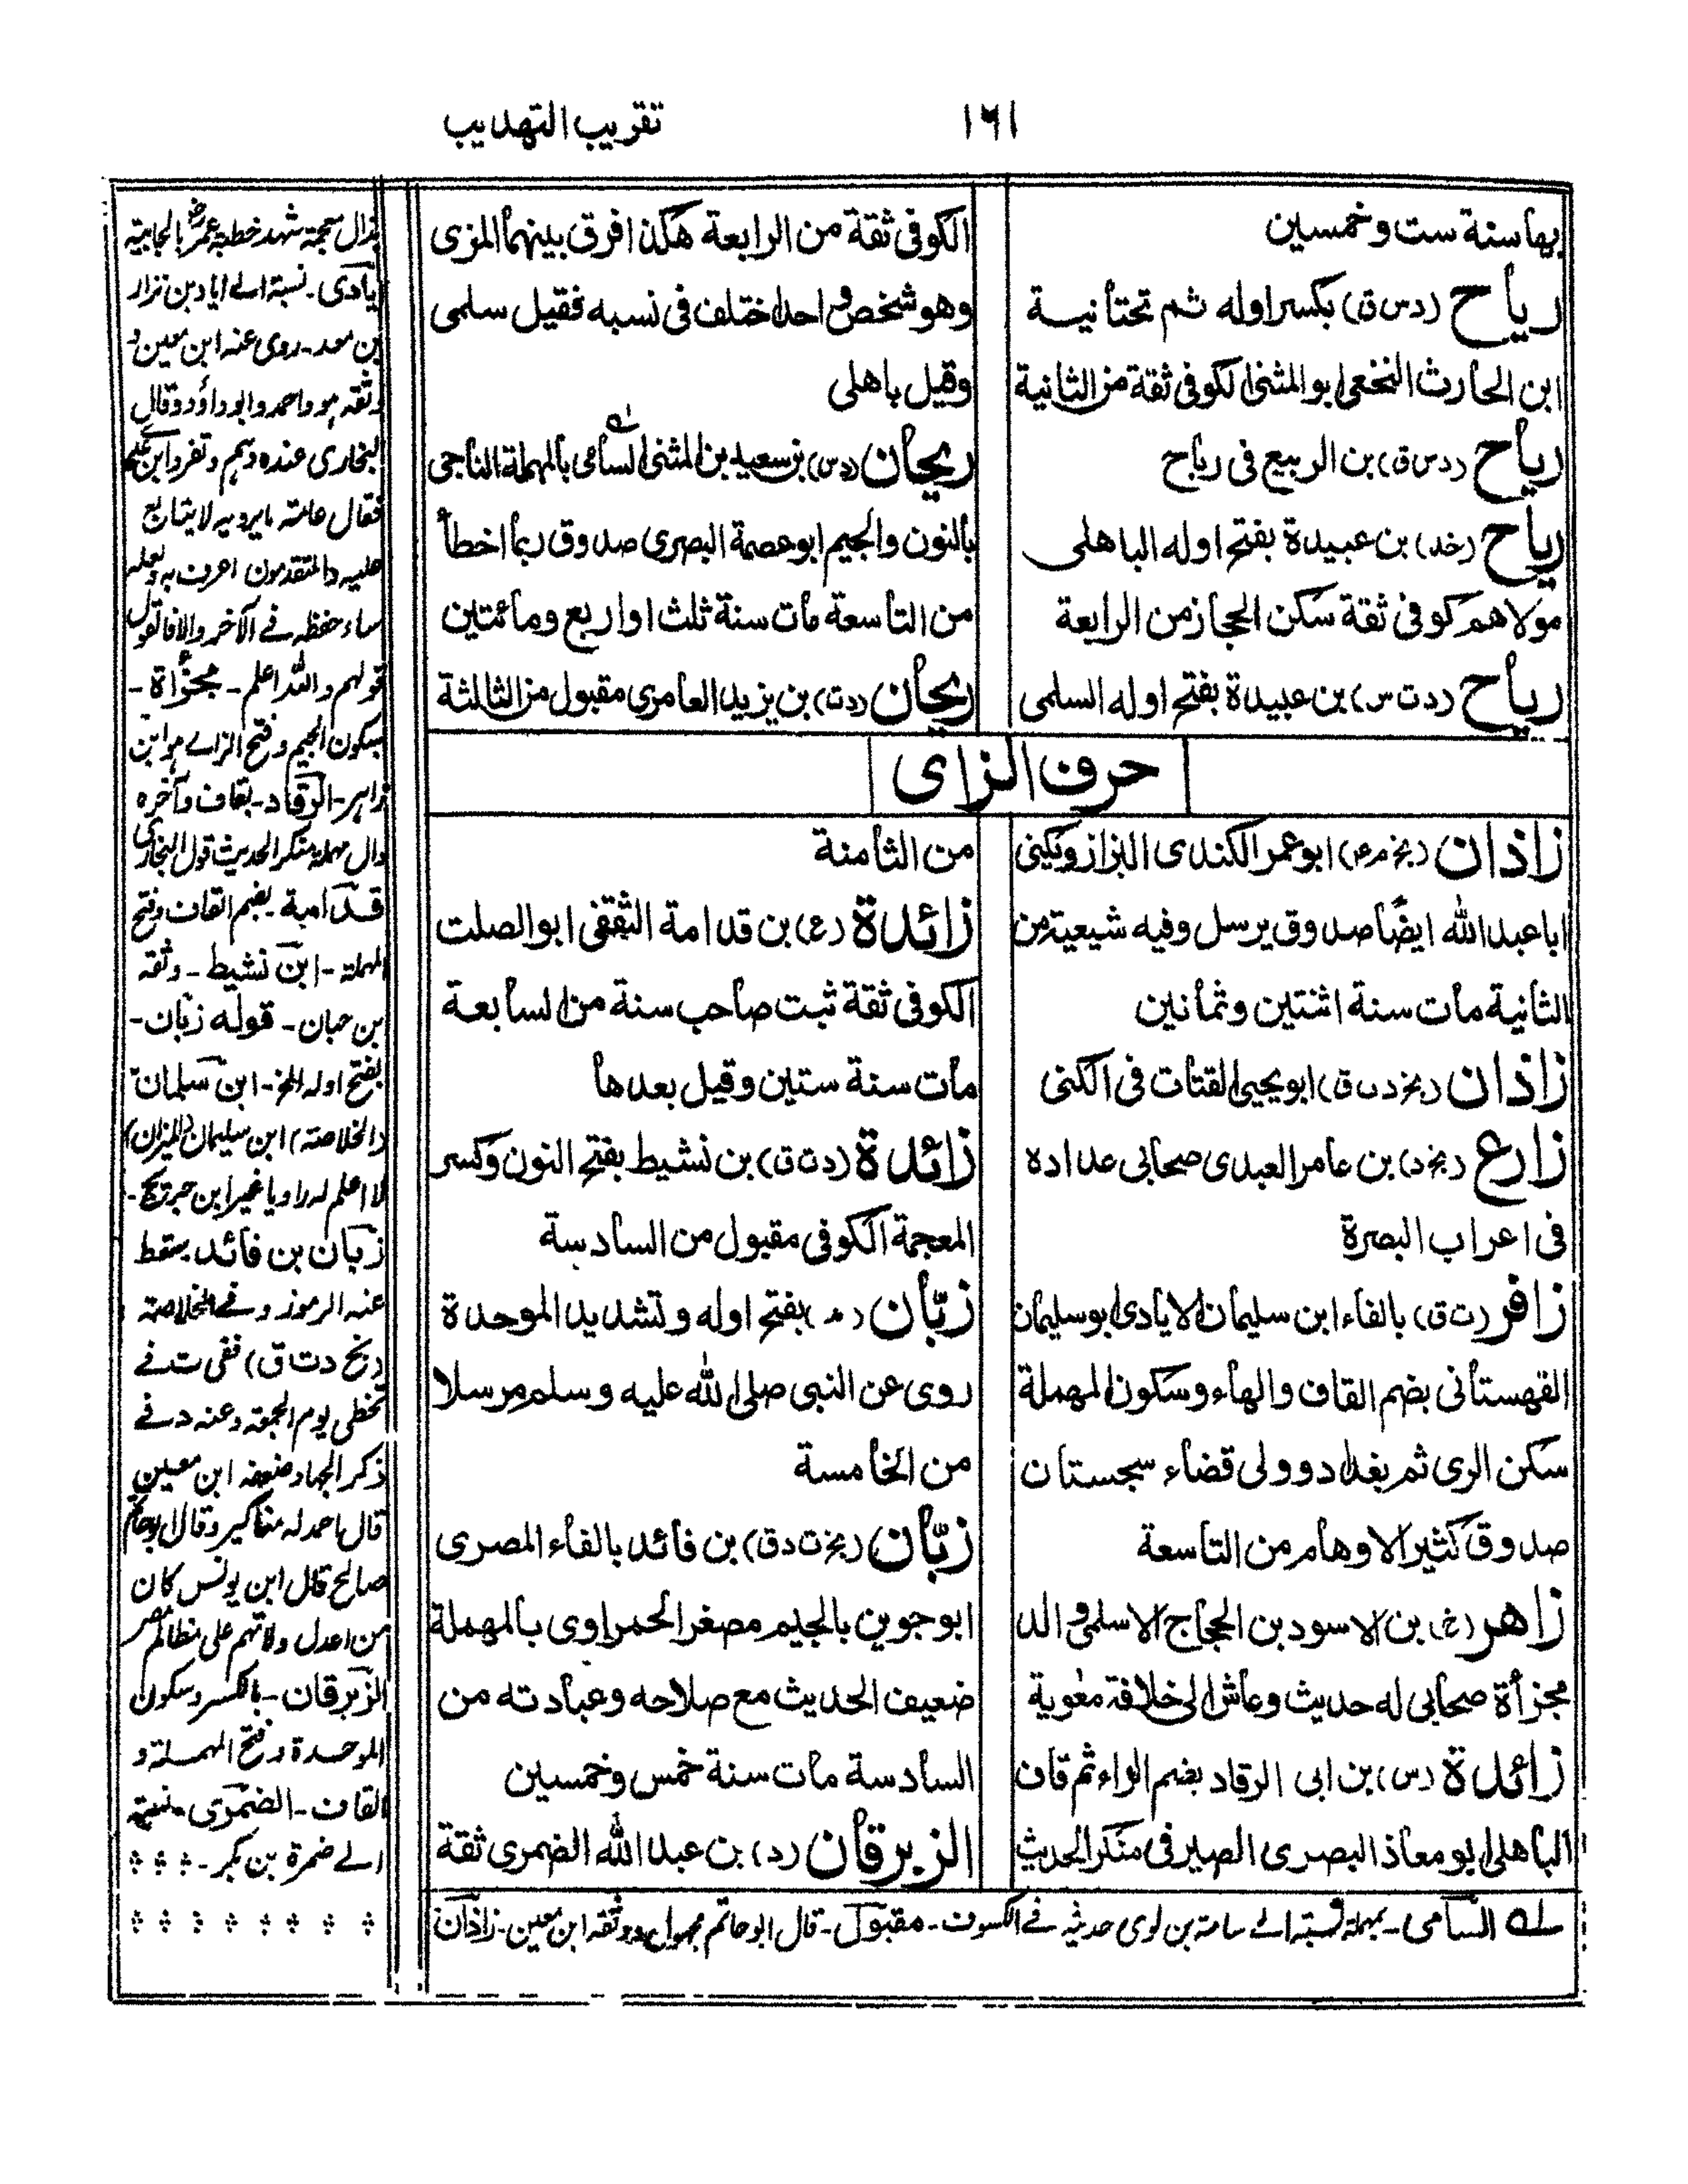 تقريب التهذيب
١٦١
بها سنة ست وخمسين
رياح (دس ق) بكسر اوله ثم تحتانية
ابن الحارث النخعي ابو المثنى الكوفى ثقة من الثانية
رياح (دس ق) بن الربيع فى رباح
رياح (خد) بن عبيدة بفتح اوله الباهلى
مولاهم كوفى ثقة سكن الحجاز من الرابعة
رياح (دت س) بن عبيدة بفتح اوله السلمى
الكوفى ثقة من الرابعة هكذا فرق بينهما المزى
وهو شخص واحد اختلف فى نسبه فقيل سلمى
وقيل باهلى
ريحان (دس) بن سعيد بن المثنى السامى بالمهملة الناجى
بالنون والجيم ابو عصمة البصرى صدوق ربما اخطأ
من التاسعة مات سنة ثلث او اربع ومائتين
ريحان (دت) بن يزيد العامرى مقبول من الثالثة
حرف الزاى
زاذان (بخ م عه) ابو عمر الكندى البزاز ويكنى
ابا عبد الله ايضا صدوق يرسل وفيه شيعية من
الثانية مات سنة اثنتين وثمانين
زاذان (بخ دت ق) ابو يحيى القتات فى الكنى
زارع (بخ د) بن عامر العبدى صحابى عداده
فى اعراب البصرة
زافر (ت ق) بالفاء ابن سليمان الايادى ابو سليمان
القهستانى بضم القاف والهاء وسكون المهملة
سكن الرى ثم بغداد وولى قضاء سجستان
صدوق كثير الاوهام من التاسعة
زاهر (خ) بن الاسود بن الحجاج الاسلمى والد
مجزأة صحابى له حديث وعاش الى خلافة معوية
زائدة (س) بن ابى الرقاد بضم الراء ثم قاف
الباهلى ابو معاذ البصرى الصيرفى منكر الحديث
من الثامنة
زائدة (ع) بن قدامة الثقفى ابو الصلت
الكوفى ثقة ثبت صاحب سنة من السابعة
مات سنة ستين وقيل بعدها
زائدة (دت ق) بن نشيط بفتح النون وكسر
المعجمة الكوفى مقبول من السادسة
زبّان (مد) بفتح اوله وتشديد الموحدة
روى عن النبى صلى الله عليه وسلم مرسلا
من الخامسة
زبّان (بخ ت دق) بن فائد بالفاء المصرى
ابو جوين بالجيم مصغر الحمراوى بالمهملة
ضعيف الحديث مع صلاحه وعبادته من
السادسة مات سنة خمس وخمسين
الزبرقان (د) بن عبد الله الضمرى ثقة
له السامى - بمهملة نسبة الے سامة بن لوى حديثه فے الكسوف - مقبول - قال ابو حاتم مجهول ووثقه ابن معين - زاذان
بزال معجمة شهد خطبة عمر بالجابية
ايادى - نسبة الے اياد بن نزار
بن معد - روى عنه ابن معين و
وثقه هو واحمد وابو داؤد وقال
البخارى عنده وهم وتفرد ابن عدى
فقال عامة ما يرويه لا يتابع
عليه والمتقدمون اعرف به ولعله
ساء حفظه فے الآخر والا فالقول
قولهم والله اعلم - مجزأة -
بسكون الجيم وفتح الزاے هو ابن
زاهر - الرقاد - بقاف وآخره
دال مهملة منكر الحديث قول البخارى
قدامة - بضم القاف وفتح
المهملة - ابن نشيط - وثقه
بن حبان - قوله زبان -
بفتح اوله الخ - ابن سلمان
(الخلاصة) ابن سليمان (الميزان)
لا اعلم له راويا غير ابن جريج -
زبان بن فائد سقط
عنه الرموز و فے الخلاصة
(بخ دت ق) ففى ت فے
تخطى يوم الجمعة وعنه د فے
ذكر الجهاد ضعفه ابن معين
قال احمد له مناكير وقال ابو حاتم
صالح قال ابن يونس كان
من اعدل ولاتهم على مظالم مصر
الزبرقان - بالكسر وسكون
الموحدة وفتح المهملة و
القاف - الضمرى - نسبة
الے ضمرة بن بكر -